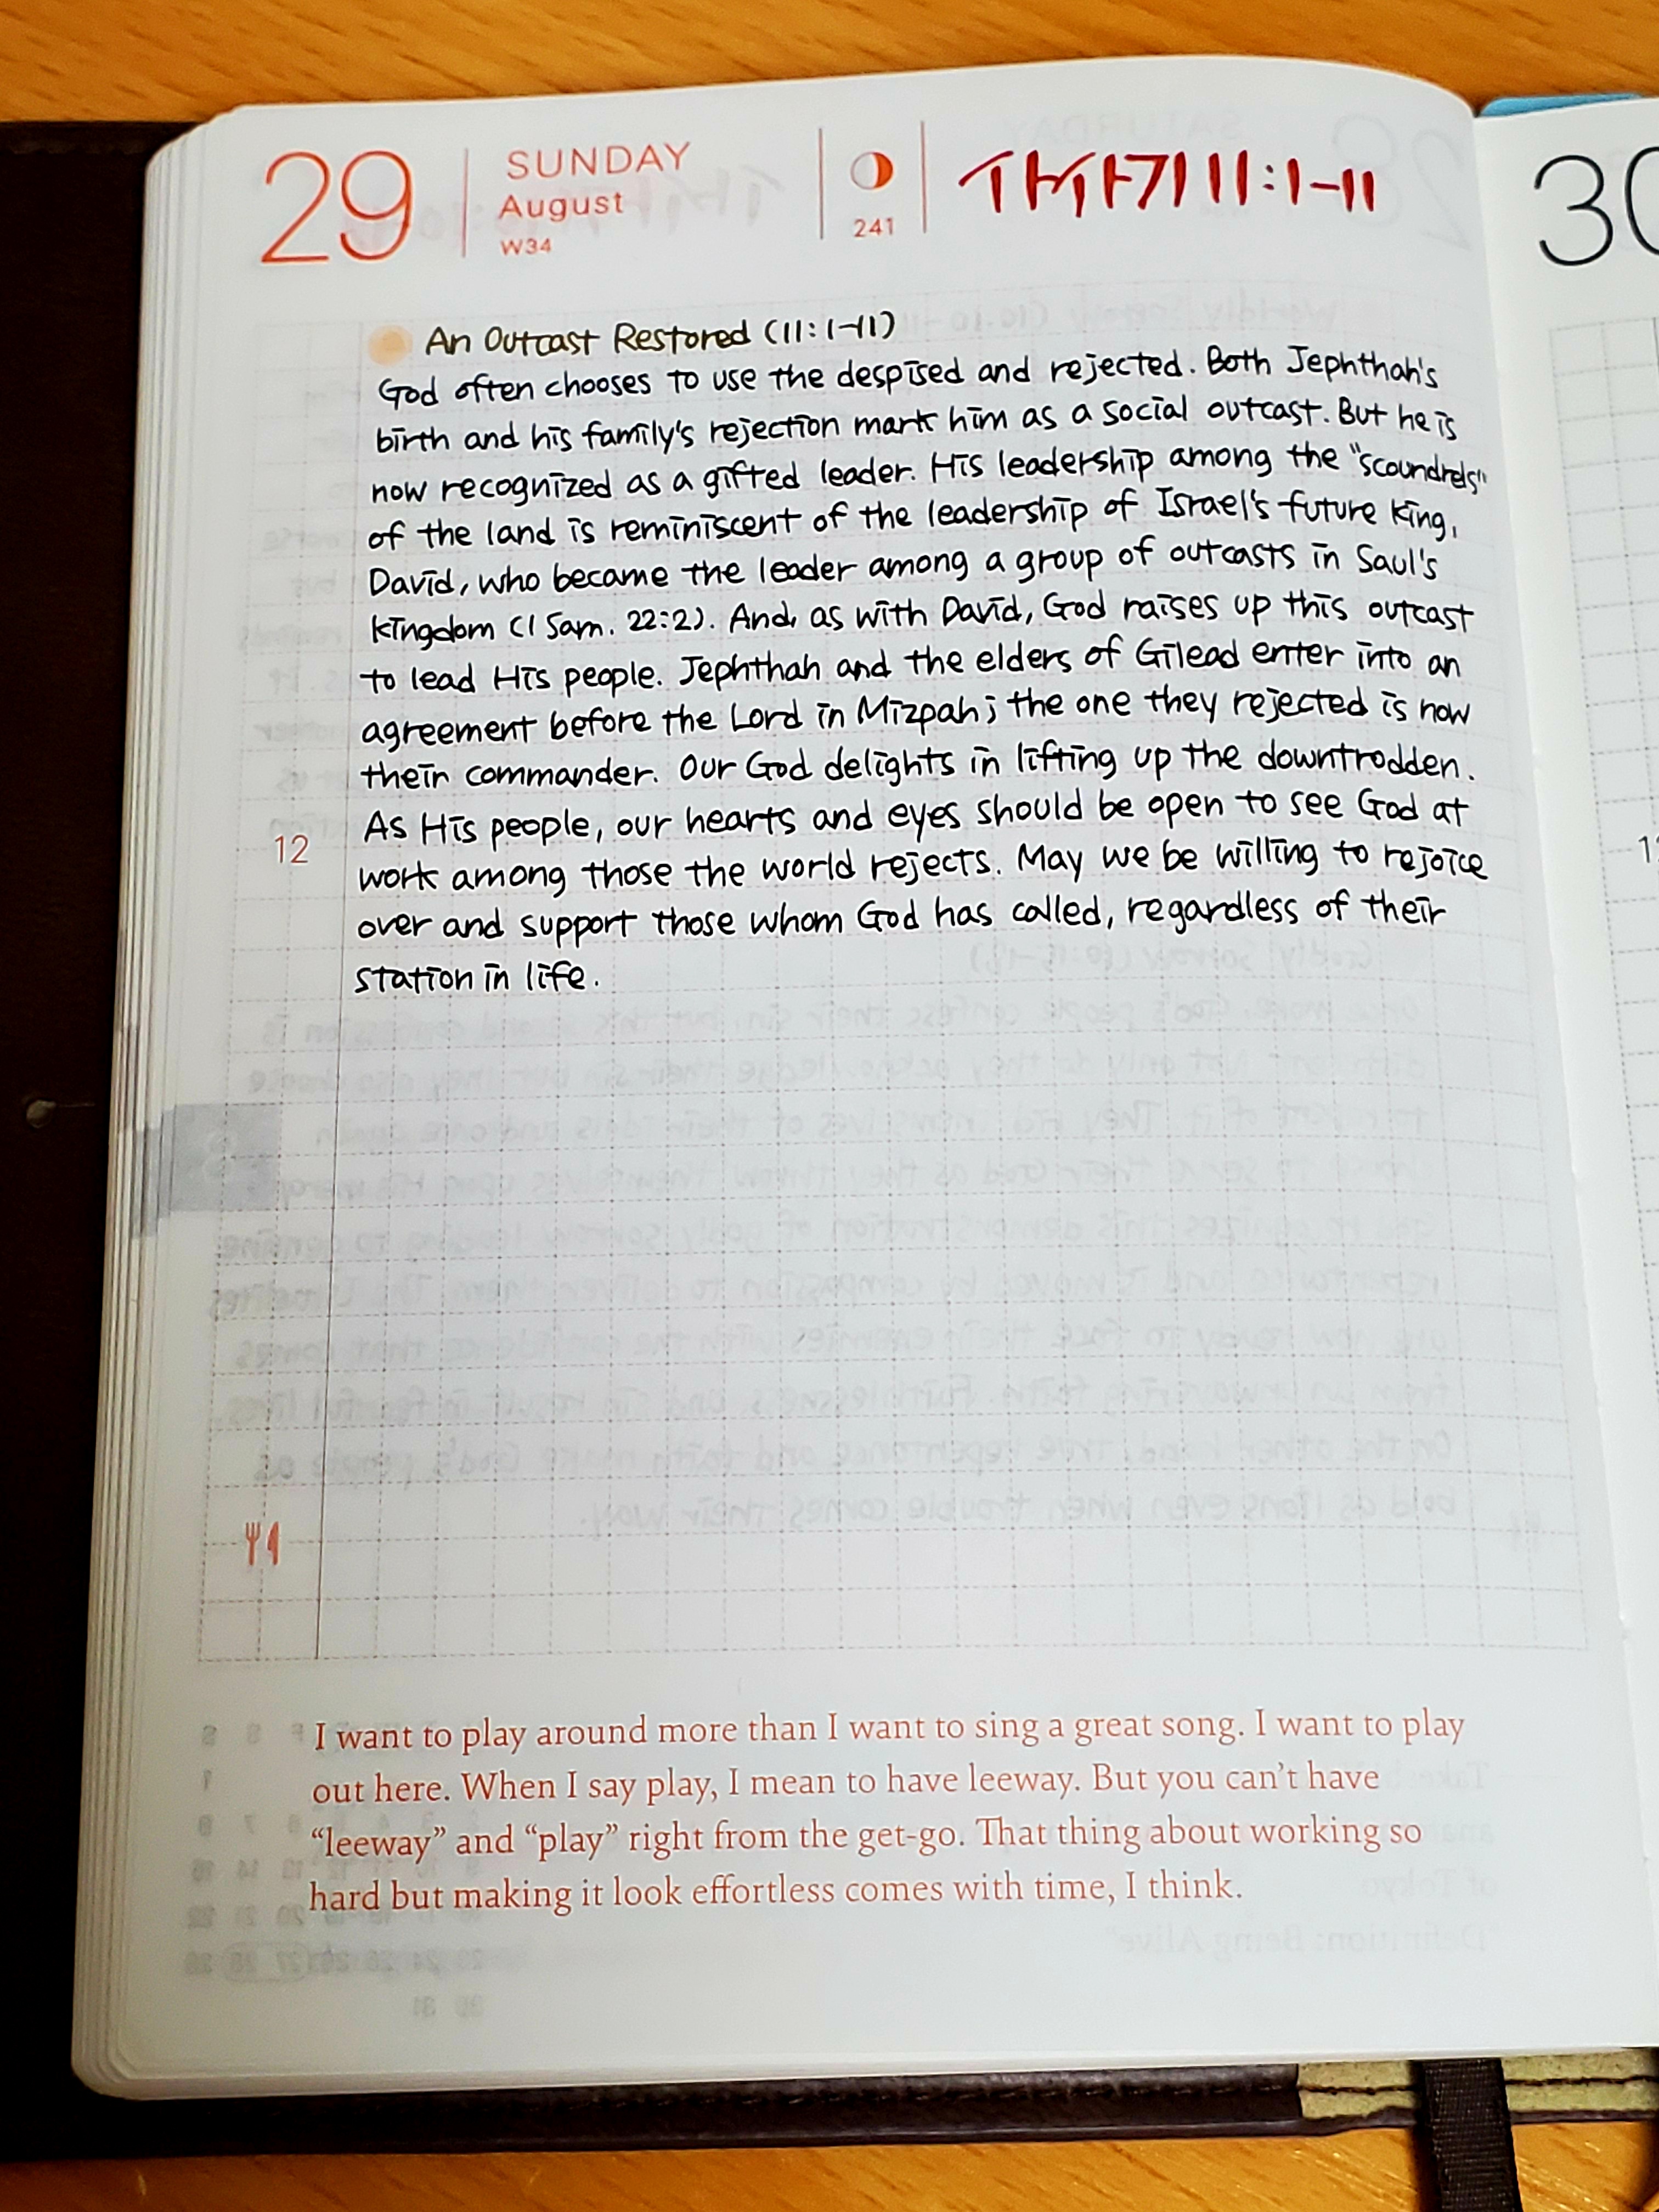 29
SUNDAY
August
W34
241
사사기 11:1-11
30
An Outcast Restored (11:1-11)
God often chooses to use the despised and rejected. Both Jephthah's
birth and his family's rejection mark him as a social outcast. But he is
now recognized as a gifted leader. His leadership among the "scoundrels"
of the land is reminiscent of the leadership of Israel's future king,
David, who became the leader among a group of outcasts in Saul's
kingdom (1 Sam. 22:2). And, as with David, God raises up this outcast
to lead His people. Jephthah and the elders of Gilead enter into an
agreement before the Lord in Mizpah; the one they rejected is now
their commander. Our God delights in lifting up the downtrodden.
As His people, our hearts and eyes should be open to see God at
12
work among those the world rejects. May we be willing to rejoice
over and support those whom God has called, regardless of their
station in life.
I want to play around more than I want to sing a great song. I want to play
out here. When I say play, I mean to have leeway. But you can't have
“leeway” and “play” right from the get-go. That thing about working so
hard but making it look effortless comes with time, I think.